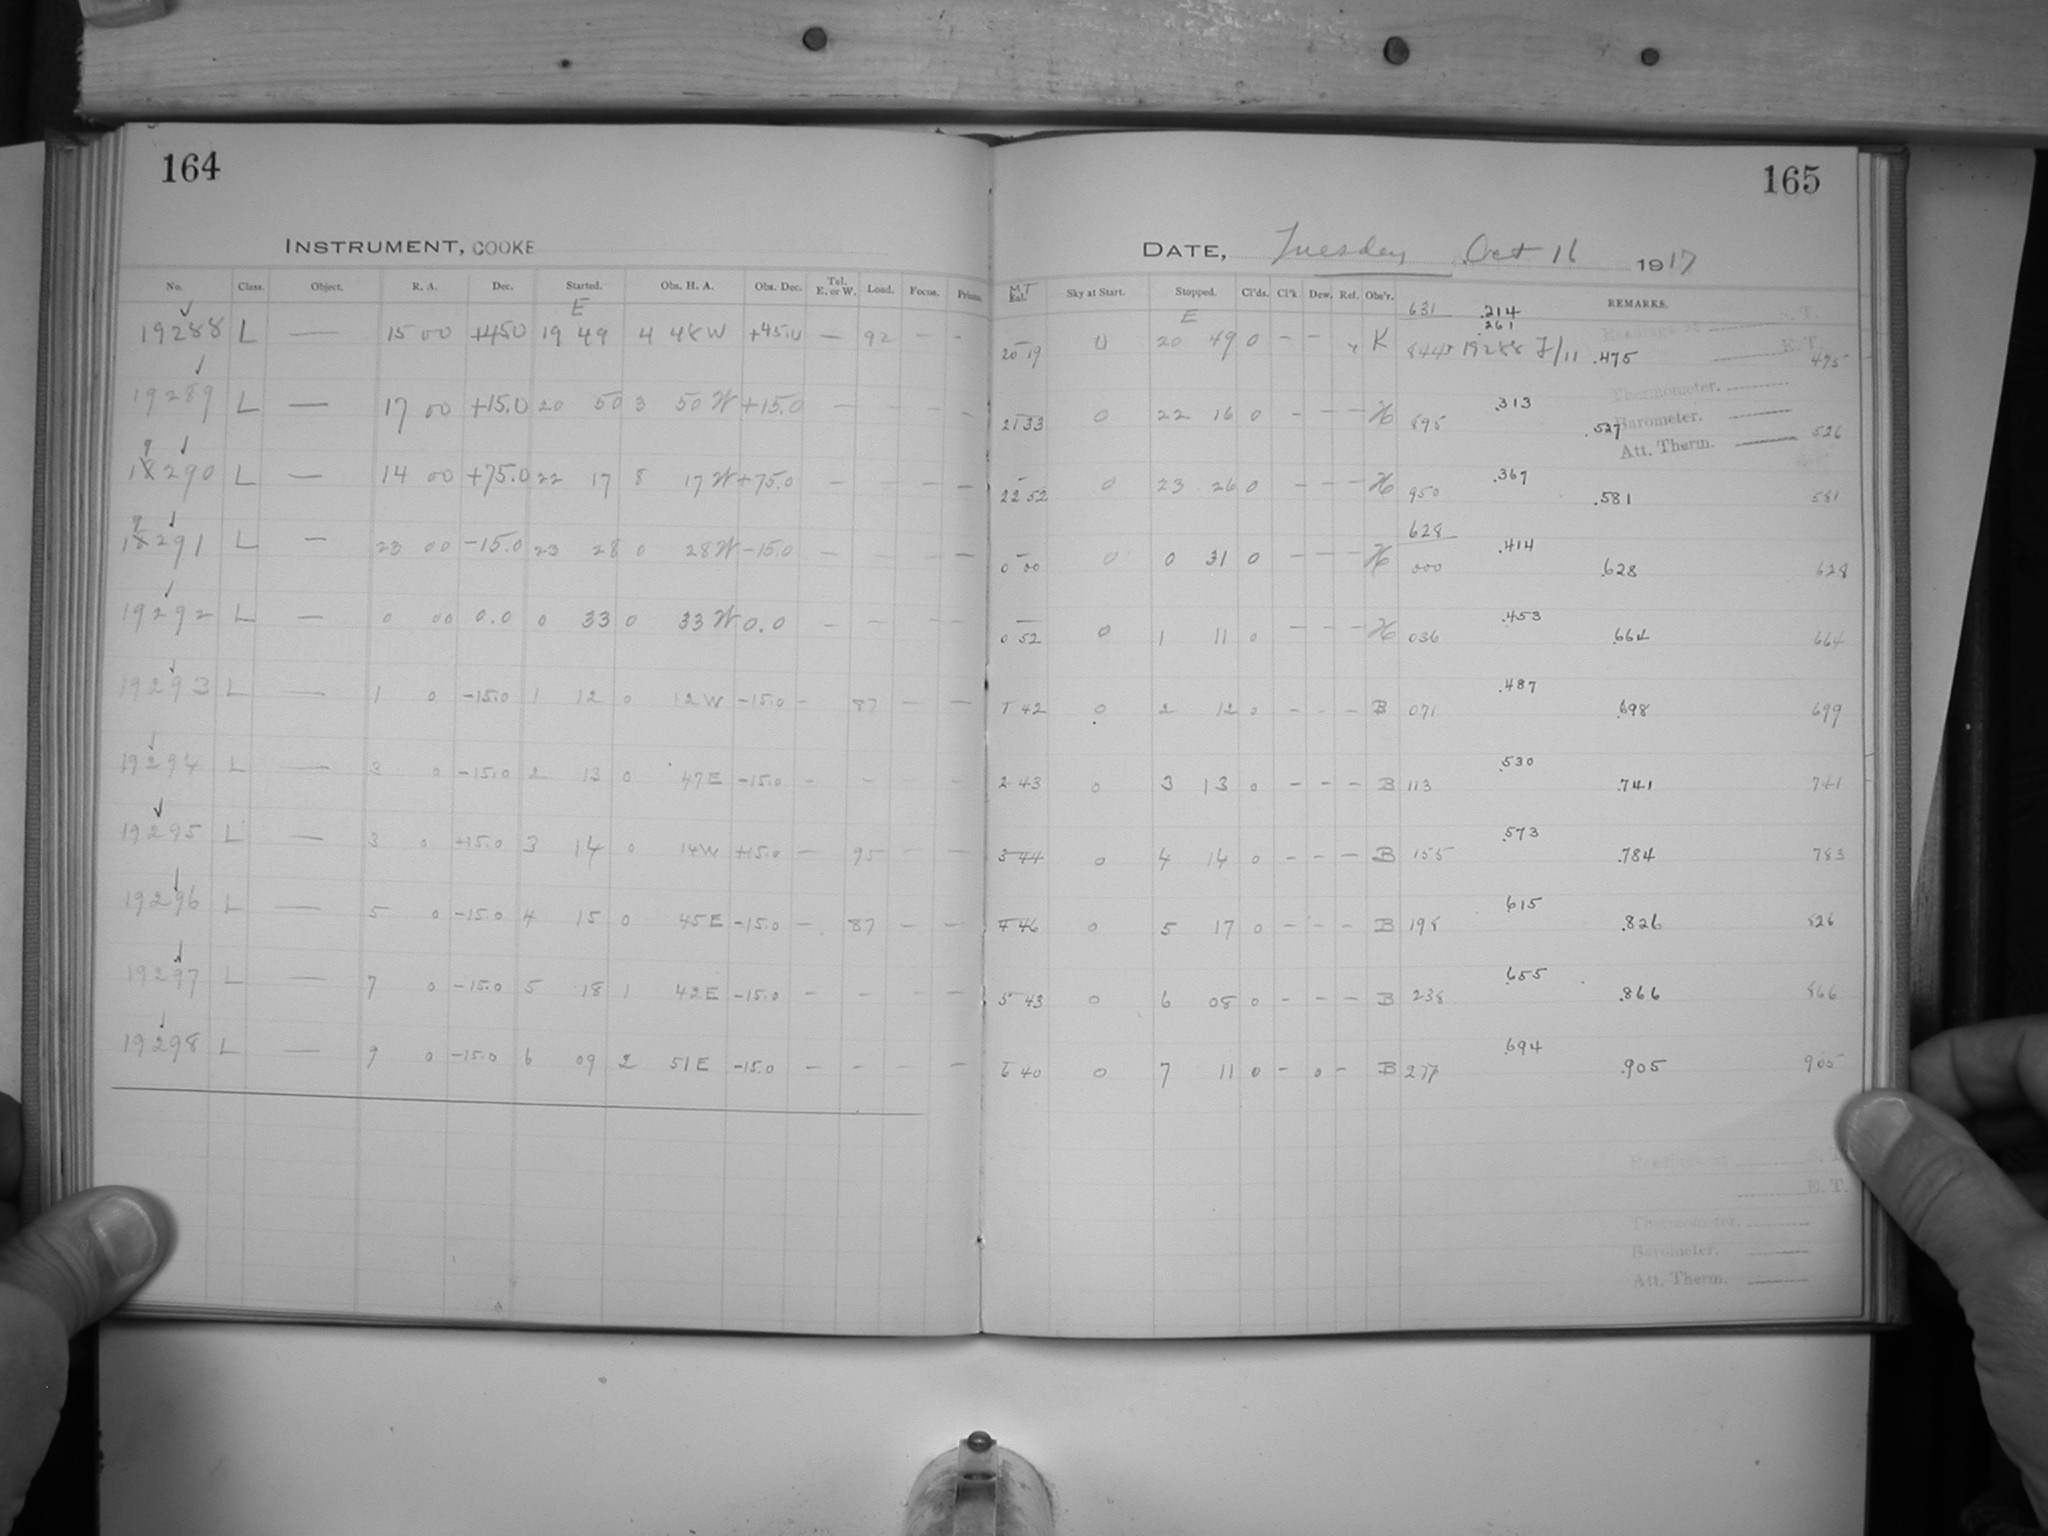 164
INSTRUMENT, COOKE
No. Class. Object. R. A. Dec. Started. Obs. H. A. Obs. Dec. Tel. E. or W. Load. Focus. Prisms.
E
19288 L — 15 00 +45.0 19 49 4 48 W +45.0 — 92 - -
19289 L — 17 00 +15.0 20 50 3 50 W +15.0 — — — —
9
18290 L — 14 00 +75.0 22 17 8 17 W +75.0 — — — —
9
18291 L — 23 00 -15.0 23 28 0 28 W -15.0 — — — —
19292 L — 0 00 0.0 0 33 0 33 W 0.0 — — — —
19293 L — 1 0 -15.0 1 12 0 12 W -15.0 — 87 — —
19294 L — 3 0 -15.0 2 13 0 47 E -15.0 — — — —
19295 L — 3 0 +15.0 3 14 0 14 W +15.0 — 95 — —
19296 L — 5 0 -15.0 4 15 0 45 E -15.0 — 87 — —
19297 L — 7 0 -15.0 5 18 1 42 E -15.0 — — — —
19298 L — 9 0 -15.0 6 09 2 51 E -15.0 — — — —
165
DATE, Tuesday Oct 16 1917
M.T. Sky at Start. Stopped. Cl'ds. Cl'k. Dew. Ref. Obs'r. REMARKS.
E 631 .214
.261
20 19 0 20 49 0 - - K 8443 19288 J/11 .475 475
21 33 0 22 16 0 - - - H 895 .313 .527 526
22 52 0 23 26 0 - - - H 950 .367 .581 581
628
0 00 0 0 31 0 - - - H 000 .414 .628 628
0 52 0 1 11 0 - - - H 036 .453 .664 664
1 42 0 2 12 0 - - - B 071 .487 .698 699
2 43 0 3 13 0 - - - B 113 .530 .741 741
3 44 0 4 14 0 - - - B 155 .573 .784 783
4 46 0 5 17 0 - - - B 198 .615 .826 826
5 43 0 6 08 0 - - - B 238 .655 .866 866
6 40 0 7 11 0 - 0 - B 277 .694 .905 905
Readings at S. T.
E. T.
Thermometer.
Barometer.
Att. Therm.
Readings at S. T.
E. T.
Thermometer.
Barometer.
Att. Therm.